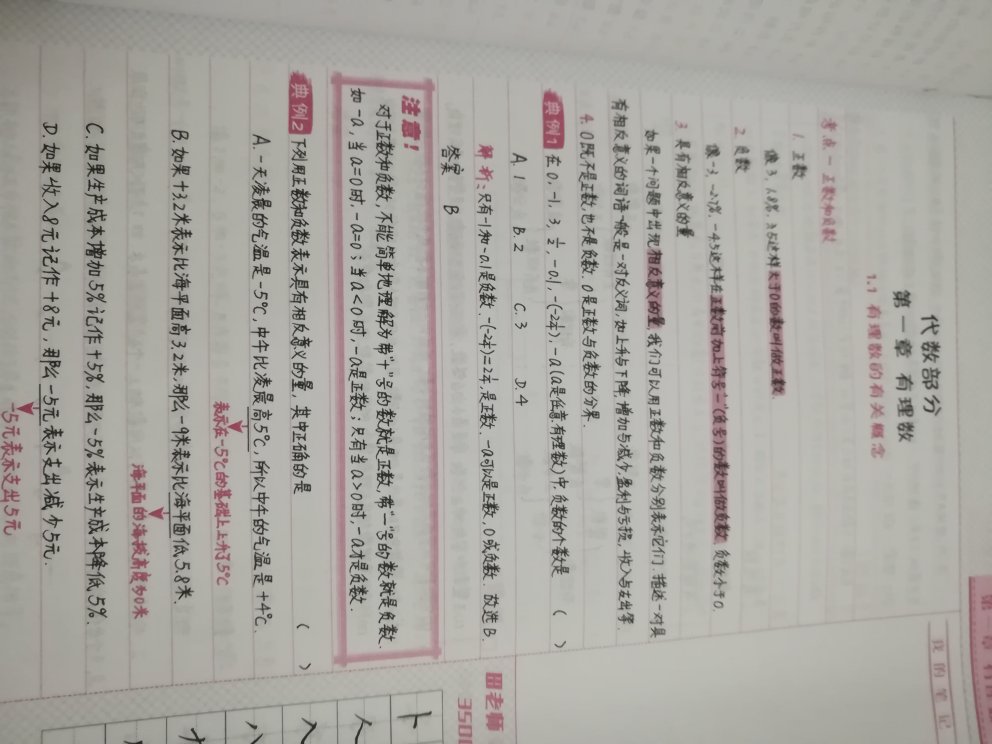 代数部分
第一章 有理数
1.1 有理数的有关概念
考点一 正数和负数
1. 正数
像3, 1.8%, 3.5这样大于0的数叫做正数.
2. 负数
像-3, -2.7%, -4.5这样在正数前加上符号"-"(负号)的数叫做负数, 负数小于0.
3. 具有相反意义的量
如果一个问题中出现相反意义的量, 我们可以用正数和负数分别表示它们. 描述一对具
有相反意义的词语一般是一对反义词, 如上升与下降, 增加与减少, 盈利与亏损, 收入与支出等.
4. 0既不是正数, 也不是负数. 0是正数与负数的分界.
典例1 在0, -1, 3, 1/2, -0.1, -(-2 1/4), -a(a是任意有理数)中, 负数的个数是 ( )
A. 1 B. 2 C. 3 D. 4
解析: 只有-1和-0.1是负数, -(-2 1/4)=2 1/4, 是正数, -a可以是正数, 0或负数. 故选B.
答案 B
注意!
对于正数和负数, 不能简单地理解为带"+"号的数就是正数, 带"-"号的数就是负数.
如-a, 当a=0时, -a=0; 当a<0时, -a是正数; 只有当a>0时, -a才是负数.
典例2 下列用正数和负数表示具有相反意义的量, 其中正确的是 ( )
A. 一天凌晨的气温是-5℃, 中午比凌晨高5℃, 所以中午的气温是+4℃.
表示在-5℃的基础上上升了5℃
B. 如果+3.2米表示比海平面高3.2米, 那么-9米表示比海平面低5.8米.
海平面的海拔高度为0米
C. 如果生产成本增加5%记作+5%, 那么-5%表示生产成本降低5%.
D. 如果收入8元记作+8元, 那么-5元表示支出减少5元.
-5元表示支出5元
我的笔记
田老师
350
卜
人
入
八